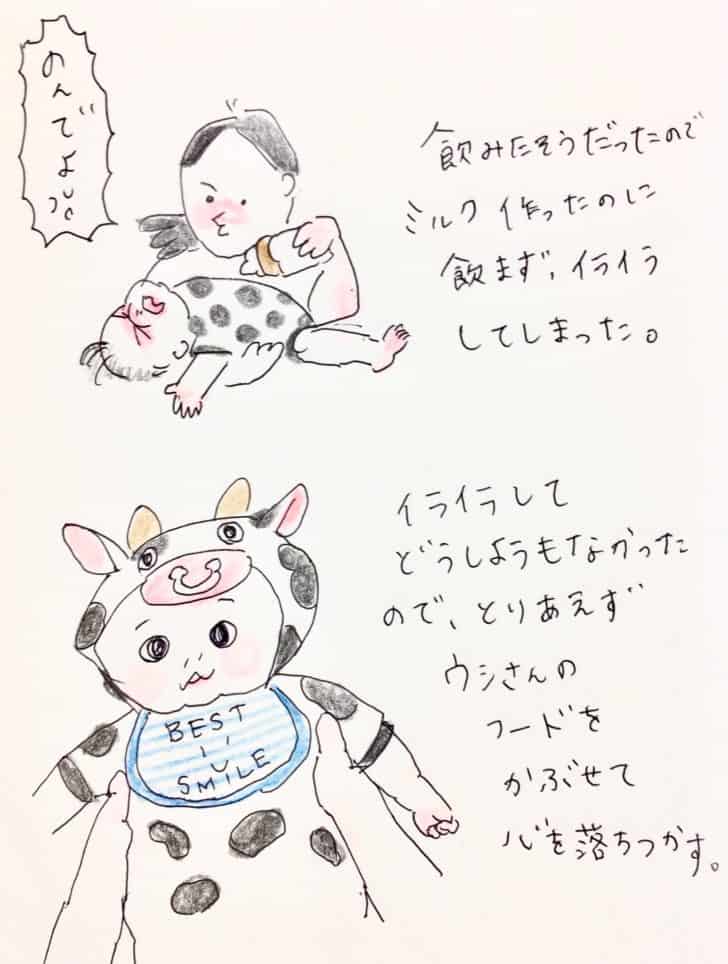 のんでよ
飲みたそうだったので
ミルク作ったのに
飲まず、イライラ
してしまった。
イライラして
どうしようもなかった
ので、とりあえず
ウシさんの
フードを
かぶせて
心を落ちつかす。
BEST
SMILE